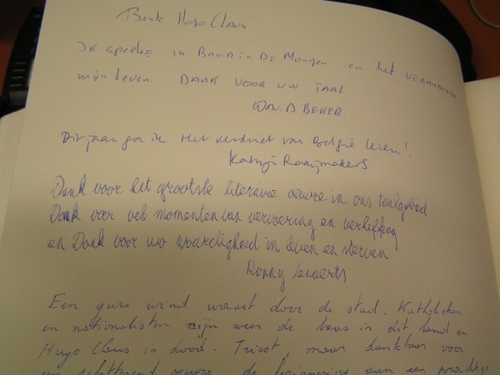 Beste Hugo Claus
Ik speelde in Bavia in De Mansen en het veranderde
mijn leven. DANK VOOR UW TAAL
Dit jaar ga ik Het verdriet van België lezen!
Katrijn Raaijmakers
Dank voor het grootste literaire œuvre in ons taalgebied
Dank voor vele momenten van vervoering en verheffing
en Dank voor uw waardigheid in leven en sterven
Ronny Lenaerts
Een gure wind waait door de stad. Katholieken
en nationalisten zijn weer de baas in dit land en
Hugo Claus is dood. Tricot maar dankbaar voor
een schitterend oeuvre de herinnering aan een prachtige